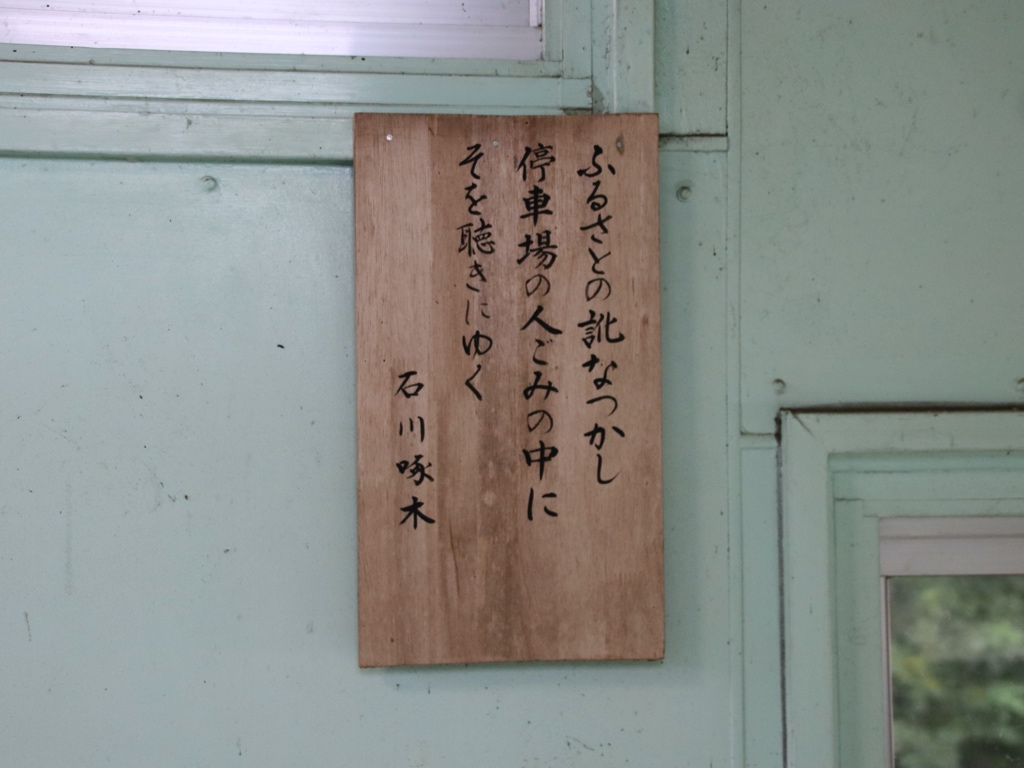 ふるさとの訛なつかし
停車場の人ごみの中に
そを聴きにゆく
石川啄木